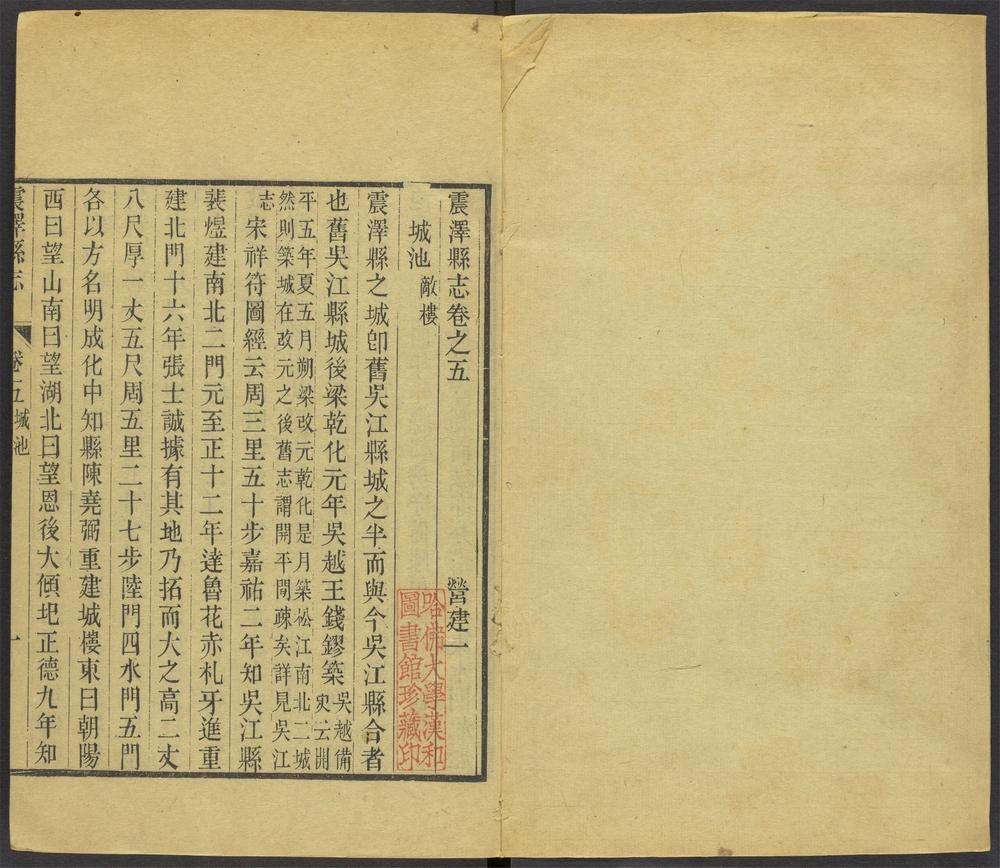 震澤縣志卷之五
營建一
城池 敵樓
震澤縣之城卽舊吳江縣城之半而與今吳江縣合者
也舊吳江縣城後梁乾化元年吳越王錢鏐築吳越備史云開
平五年夏五月朔梁改元乾化是月築松江南北二城
然則築城在改元之後舊志謂開平間疎矣詳見吳江
志宋祥符圖經云周三里五十步嘉祐二年知吳江縣
裴煜建南北二門元至正十二年達魯花赤札牙進重
建北門十六年張士誠據有其地乃拓而大之高二丈
八尺厚一丈五尺周五里二十七步陸門四水門五門
各以方名明成化中知縣陳堯弼重建城樓東曰朝陽
西曰望山南曰望湖北曰望恩後大傾圮正德九年知
震澤縣志
卷五城池
一
哈佛大學漢和
圖書館珍藏印